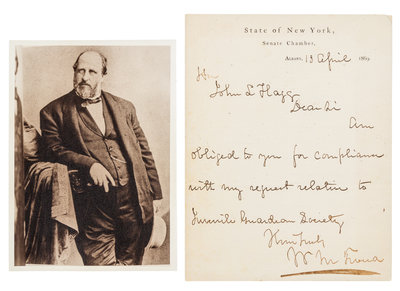 State of New York,
Senate Chamber,
Albany, 13 April 1869
Hon
John L Flagg
Dear Sir
Am
obliged to you for compliance
with my request relation to
Juvenile Guardian Society
Wm M Tweed